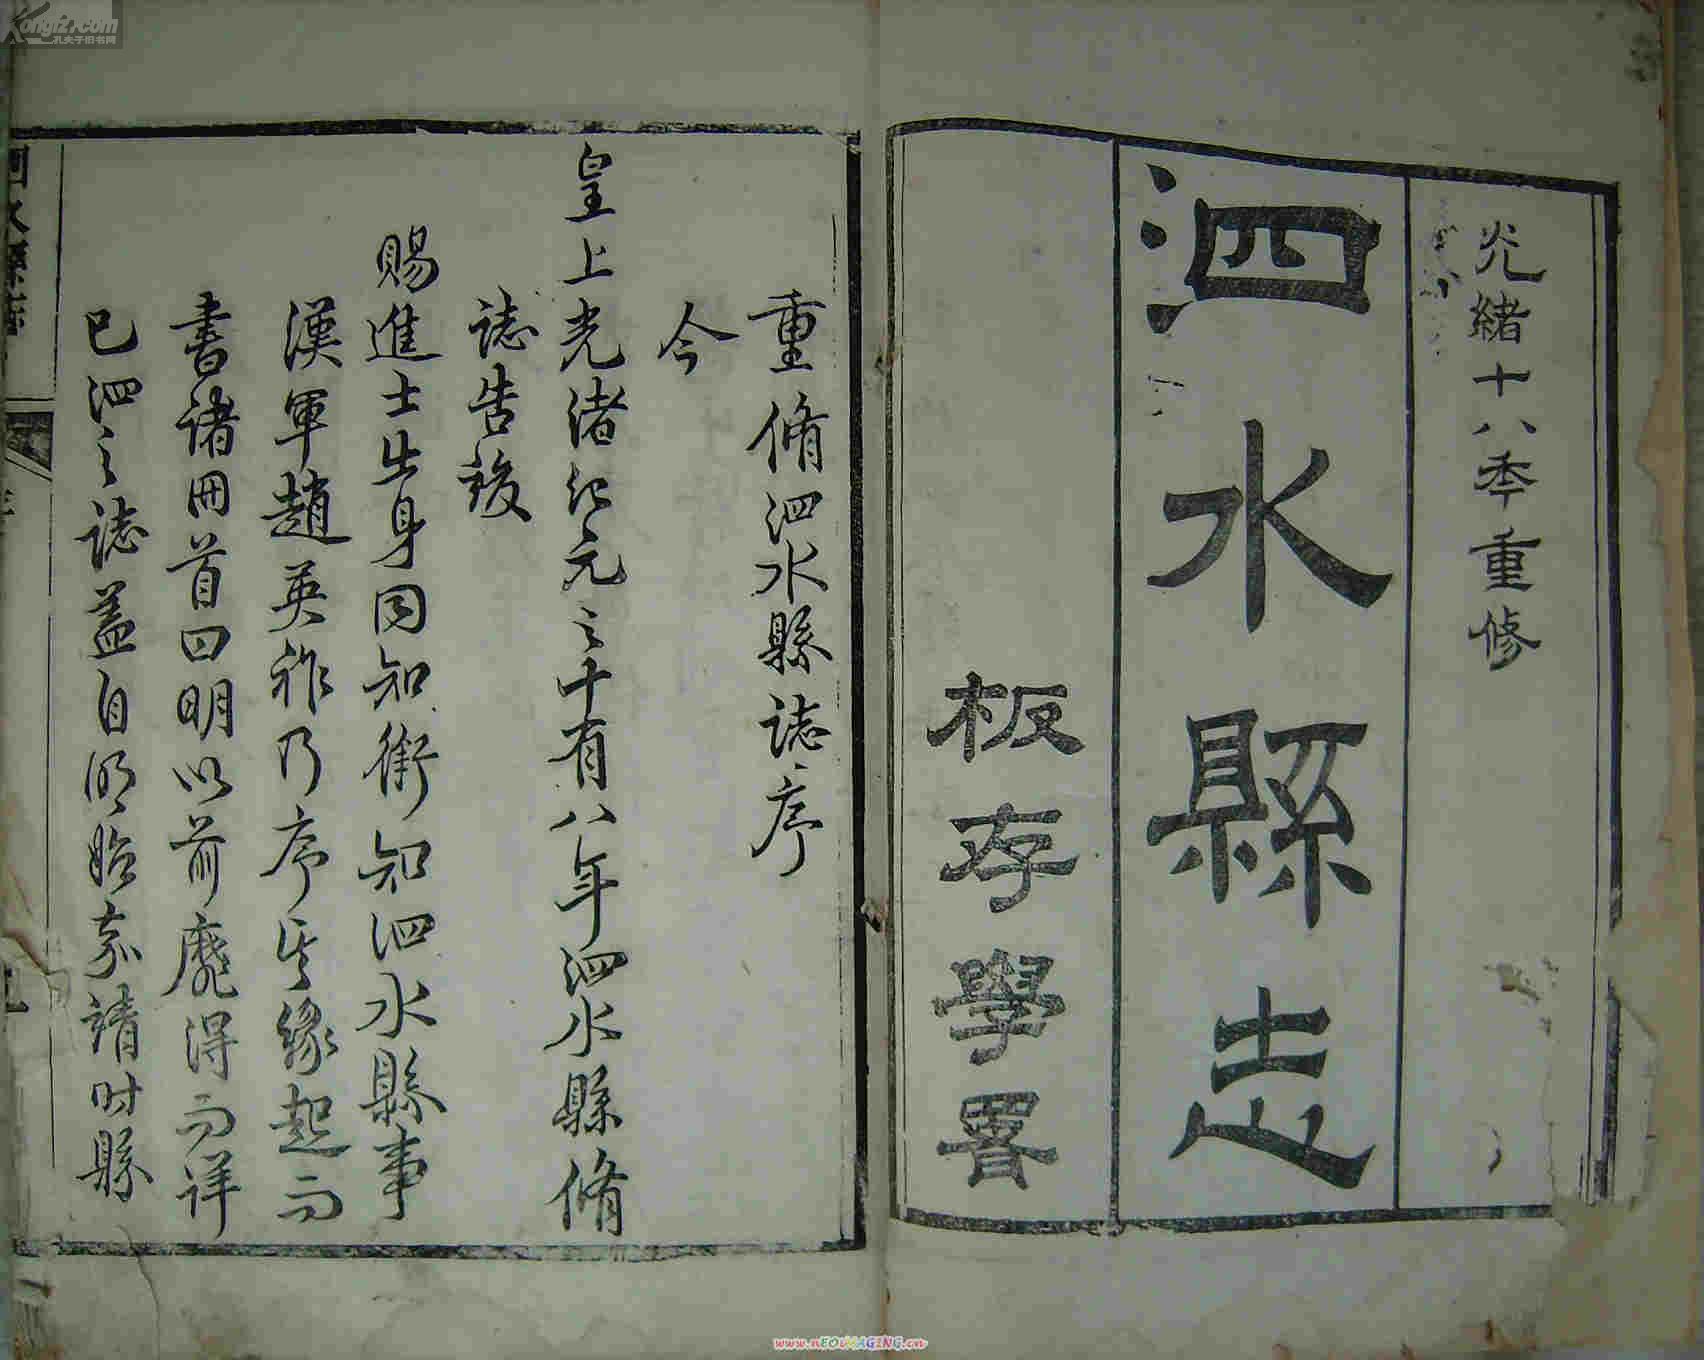 光緒十八年重修
泗水縣志
板存學署
重脩泗水縣誌序
今
皇上光渚紀元之十有八年泗水縣脩
誌告竣
賜進士出身同知銜知泗水縣事
漢軍趙英祚乃序其緣起而
書諸冊首曰明以前靡得而詳
已泗之誌蓋自明始嘉靖时縣
泗水縣志
Kongfz.com
孔夫子旧书网
www.nEOiMAGING.cn